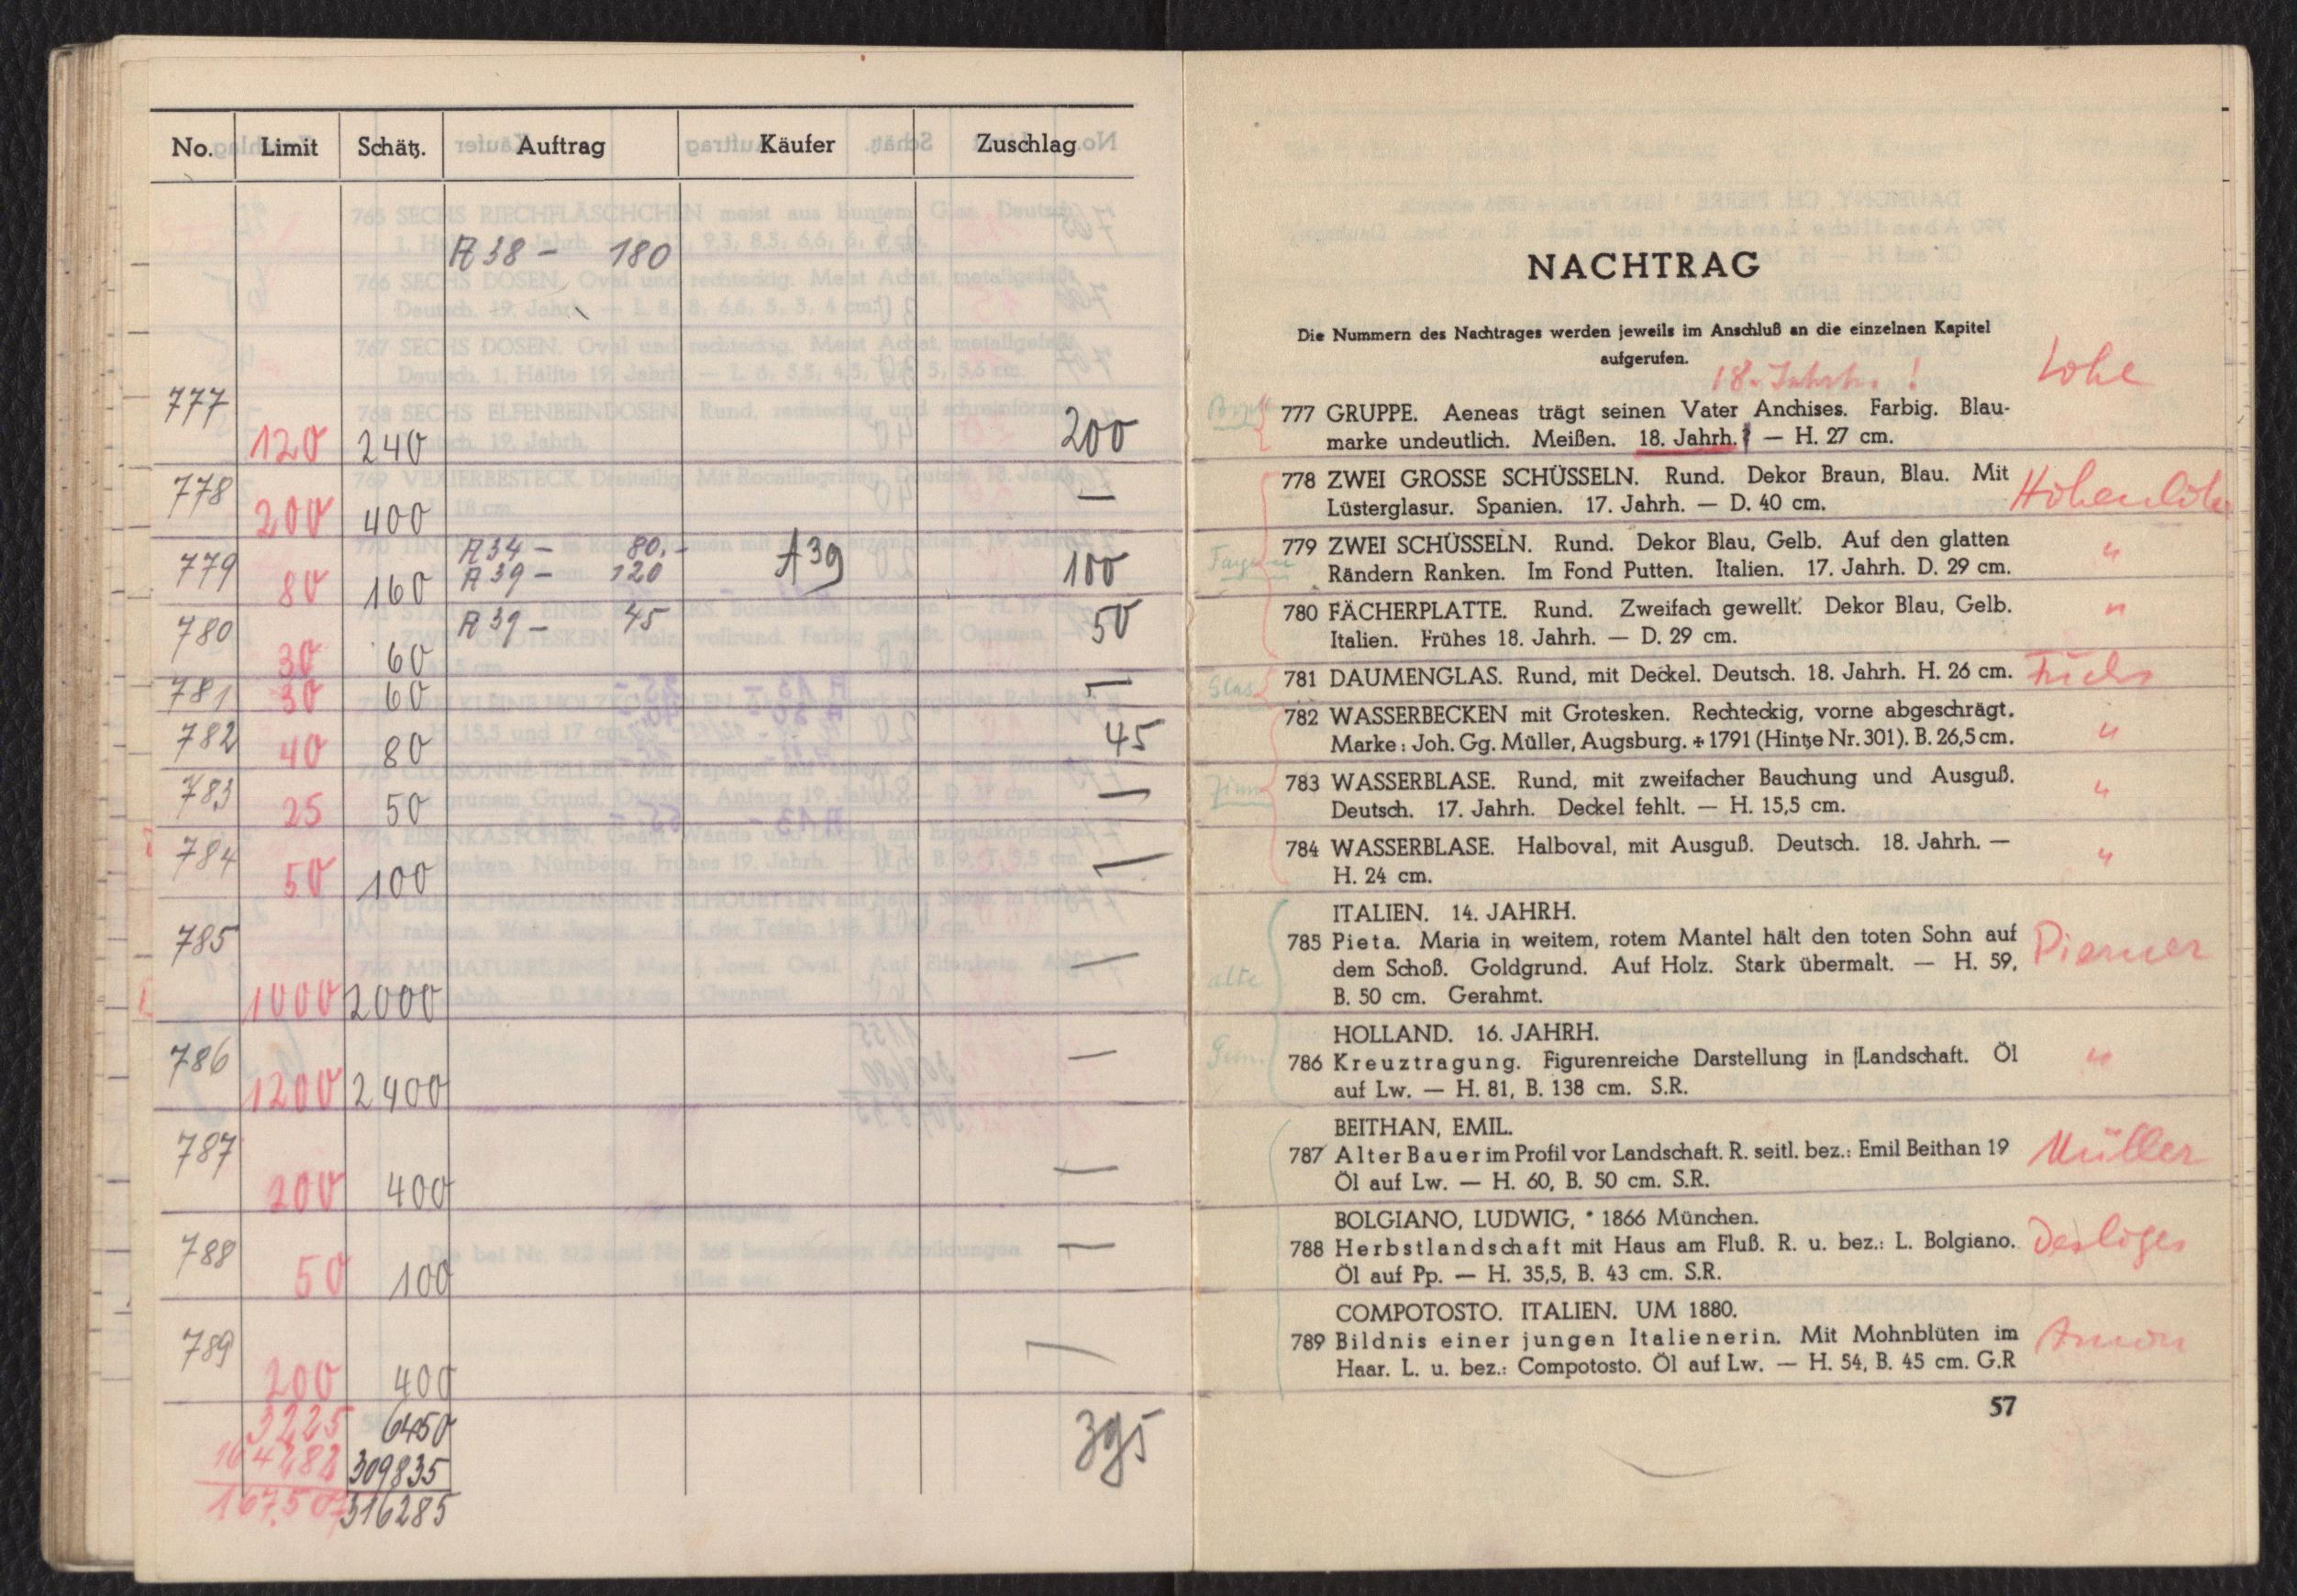 No. Limit Schätz. Auftrag Käufer Zuschlag
A 38 – 180
777 120 240 200
778 200 400 —
A 34 – 80.–
779 80 160 A 39 – 120 A 39 100
780 30 60 A 39 – 45 50
781 30 60 —
782 40 80 45
783 25 50 —
784 50 100 —
785 1000 2000 —
786 1200 2400 —
787 200 400 —
788 50 100 —
789 200 400 —
3225 6450 395
309835
316285
NACHTRAG
Die Nummern des Nachtrages werden jeweils im Anschluß an die einzelnen Kapitel
aufgerufen.
18. Jahrh. !
Lohe
777 GRUPPE. Aeneas trägt seinen Vater Anchises. Farbig. Blau-
marke undeutlich. Meißen. 18. Jahrh.? — H. 27 cm.
778 ZWEI GROSSE SCHÜSSELN. Rund. Dekor Braun, Blau. Mit
Lüsterglasur. Spanien. 17. Jahrh. — D. 40 cm.
Hohenlohe
779 ZWEI SCHÜSSELN. Rund. Dekor Blau, Gelb. Auf den glatten "
Rändern Ranken. Im Fond Putten. Italien. 17. Jahrh. D. 29 cm.
780 FÄCHERPLATTE. Rund. Zweifach gewellt. Dekor Blau, Gelb. "
Italien. Frühes 18. Jahrh. — D. 29 cm.
Glas 781 DAUMENGLAS. Rund, mit Deckel. Deutsch. 18. Jahrh. H. 26 cm. Fuchs
782 WASSERBECKEN mit Grotesken. Rechteckig, vorne abgeschrägt. "
Marke: Joh. Gg. Müller, Augsburg. + 1791 (Hintze Nr. 301). B. 26,5 cm.
Zinn 783 WASSERBLASE. Rund, mit zweifacher Bauchung und Ausguß. "
Deutsch. 17. Jahrh. Deckel fehlt. — H. 15,5 cm.
784 WASSERBLASE. Halboval, mit Ausguß. Deutsch. 18. Jahrh. — "
H. 24 cm.
ITALIEN. 14. JAHRH.
785 Pieta. Maria in weitem, rotem Mantel hält den toten Sohn auf
alte dem Schoß. Goldgrund. Auf Holz. Stark übermalt. — H. 59,
B. 50 cm. Gerahmt.
HOLLAND. 16. JAHRH.
Gem. 786 Kreuztragung. Figurenreiche Darstellung in Landschaft. Öl "
auf Lw. — H. 81, B. 138 cm. S.R.
BEITHAN, EMIL.
787 Alter Bauer im Profil vor Landschaft. R. seitl. bez.: Emil Beithan 19 Müller
Öl auf Lw. — H. 60, B. 50 cm. S.R.
BOLGIANO, LUDWIG, * 1866 München.
788 Herbstlandschaft mit Haus am Fluß. R. u. bez.: L. Bolgiano.
Öl auf Pp. — H. 35,5, B. 43 cm. S.R.
COMPOTOSTO. ITALIEN. UM 1880.
789 Bildnis einer jungen Italienerin. Mit Mohnblüten im
Haar. L. u. bez.: Compotosto. Öl auf Lw. — H. 54, B. 45 cm. G.R
57